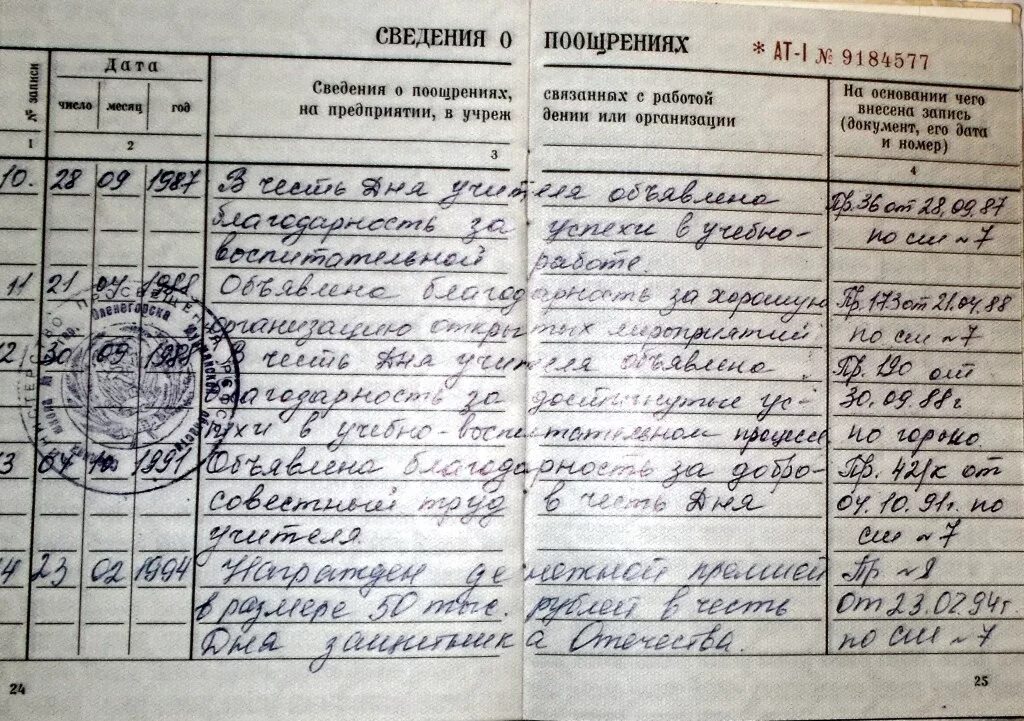 СВЕДЕНИЯ О ПООЩРЕНИЯХ * АТ-I № 9184577
№ записи
Дата
число месяц год
Сведения о поощрениях, связанных с работой
на предприятии, в учреждении или организации
На основании чего
внесена запись
(документ, его дата
и номер)
1 2 3 4
10. 28 09 1987 В честь Дня учителя объявлена Пр. 36 от 28.09.87
благодарность за успехи в учебно- по сш №7
воспитательной работе.
11 21 04 1988 Объявлена благодарность за хорошую Пр. 173 от 21.04.88
организацию открытых мероприятий по сш №7
12 30 09 1988 В честь Дня учителя объявлена Пр. 190 от
благодарность за достигнутые ус- 30.09.88г
пехи в учебно-воспитательном процессе по гороно.
3 04 10 1991 Объявлена благодарность за добро- Пр. 42/к от
совестный труд в честь Дня 04.10.91г. по
учителя. сш №7
4 23 02 1994 Награжден денежной премией Пр №8
в размере 50 тыс. рублей в честь от 23.02.94г.
Дня защитника Отечества. по сш №7
Оленегорска
24
25